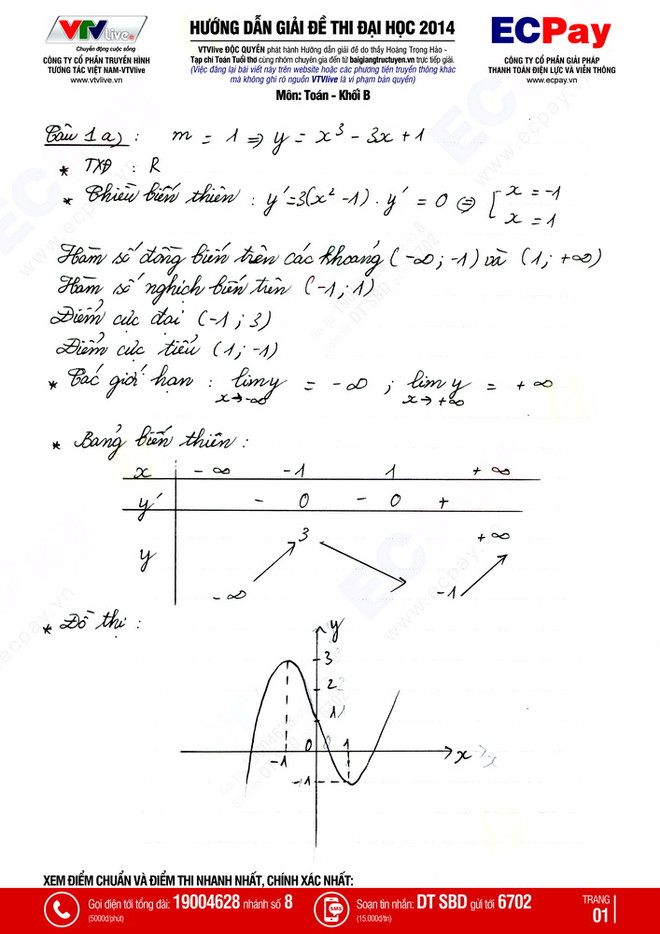 VTVlive
Chuyển động cuộc sống
CÔNG TY CỔ PHẦN TRUYỀN HÌNH
TƯƠNG TÁC VIỆT NAM-VTVlive
www.vtvlive.vn
HƯỚNG DẪN GIẢI ĐỀ THI ĐẠI HỌC 2014
VTVlive ĐỘC QUYỀN phát hành Hướng dẫn giải đề do thầy Hoàng Trọng Hảo -
Tạp chí Toán Tuổi thơ cùng nhóm chuyên gia đến từ baigiangtructuyen.vn trực tiếp giải.
(Việc đăng lại bài viết này trên website hoặc các phương tiện truyền thông khác
mà không ghi rõ nguồn VTVlive là vi phạm bản quyền)
Môn: Toán - Khối B
ECPay
CÔNG TY CỔ PHẦN GIẢI PHÁP
THANH TOÁN ĐIỆN LỰC VÀ VIỄN THÔNG
www.ecpay.vn
Câu 1a) : m = 1 ⇒ y = x³ - 3x + 1
* TXĐ : R
* Chiều biến thiên : y' = 3(x² - 1) . y' = 0 ⇔ [ x = -1
x = 1
Hàm số đồng biến trên các khoảng (-∞; -1) và (1; +∞)
Hàm số nghịch biến trên (-1; 1)
Điểm cực đại (-1; 3)
Điểm cực tiểu (1; -1)
* Các giới hạn : lim y = -∞ ; lim y = +∞
x→-∞ x→+∞
* Bảng biến thiên :
x -∞ -1 1 +∞
y' - 0 - 0 +
3 +∞
y
-∞ -1
* Đồ thị :
y
3
2
1
0 1
-1 x
-1
XEM ĐIỂM CHUẨN VÀ ĐIỂM THI NHANH NHẤT, CHÍNH XÁC NHẤT:
Gọi điện tới tổng đài: 19004628 nhánh số 8
(5000đ/phút)
SMS
Soạn tin nhắn: DT SBD gửi tới 6702
(15.000đ/tin)
TRANG
01